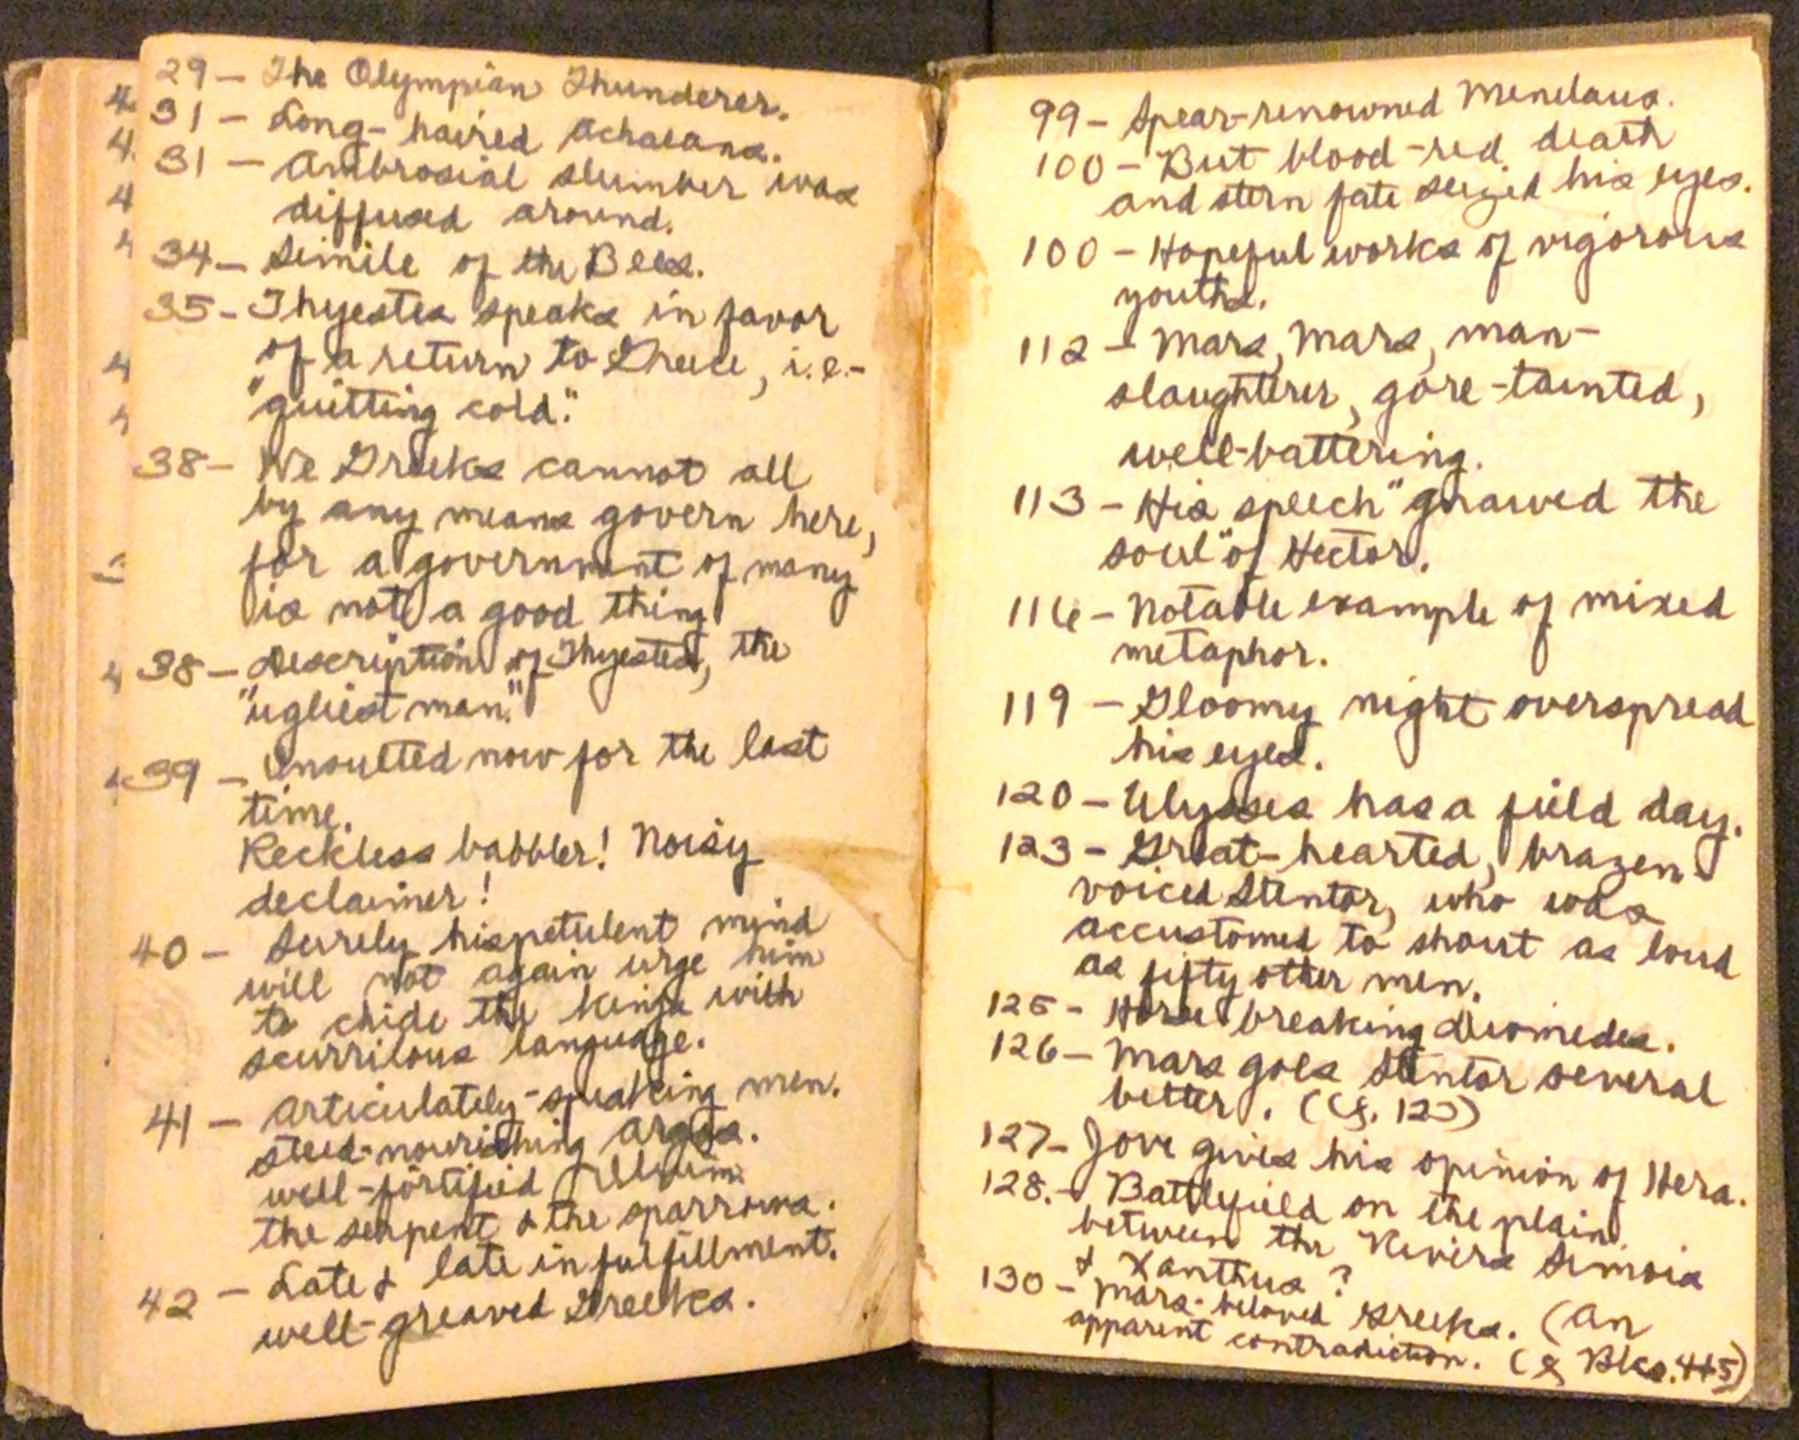 29 — The Olympian Thunderer.
31 — Long-haired Achaeans.
31 — Ambrosial slumber was
diffused around.
34 — Simile of the Bees.
35 — Thyestes speaks in favor
of a return to Greece, i.e.-
"quitting cold."
38 — We Greeks cannot all
by any means govern here,
for a government of many
is not a good thing
38 — Description of Thyestes, the
"ugliest man."
39 — Insulted now for the last
time.
Reckless babbler! Noisy
declaimer!
40 — Surely his petulent mind
will not again urge him
to chide the kings with
scurrilous language.
41 — Articulately-speaking men.
steed-nourishing Argos.
well-fortified Ilium.
the serpent & the sparrows.
42 — Late & late in fulfillment.
well-greaved Greeks.
99 — Spear-renowned Menelaus.
100 — But blood-red death
and stern fate seized his eyes.
100 — Hopeful works of vigorous
youths.
112 — Mars, Mars, man-
slaughterer, gore-tainted,
well-battering.
113 — His speech "gnawed the
soul" of Hector.
116 — Notable example of mixed
metaphor.
119 — Gloomy night overspread
his eyes.
120 — Ulysses has a field day.
123 — Great-hearted, brazen-
voiced Stentor, who was
accustomed to shout as loud
as fifty other men.
125 — Horse breaking Diomedes.
126 — Mars goes Stentor several
better. (Cf. 123)
127 — Jove gives his opinion of Hera.
128. — Battlefield on the plain
between the Rivers Simois
& Xanthus?
130 — Mars-beloved Greeks. (An
apparent contradiction. (& Bks. 4+5)